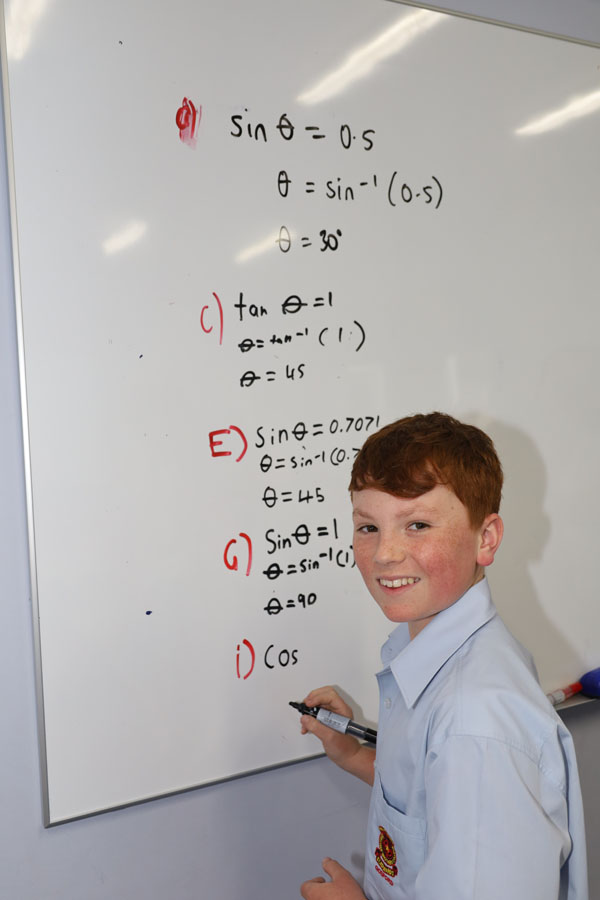 a) sin θ = 0.5
θ = sin⁻¹ (0.5)
θ = 30°
C) tan θ = 1
θ = tan⁻¹ (1)
θ = 45
E) Sin θ = 0.7071
θ = sin⁻¹ (0.7
θ = 45
G) Sin θ = 1
θ = sin⁻¹ (1)
θ = 90
i) Cos